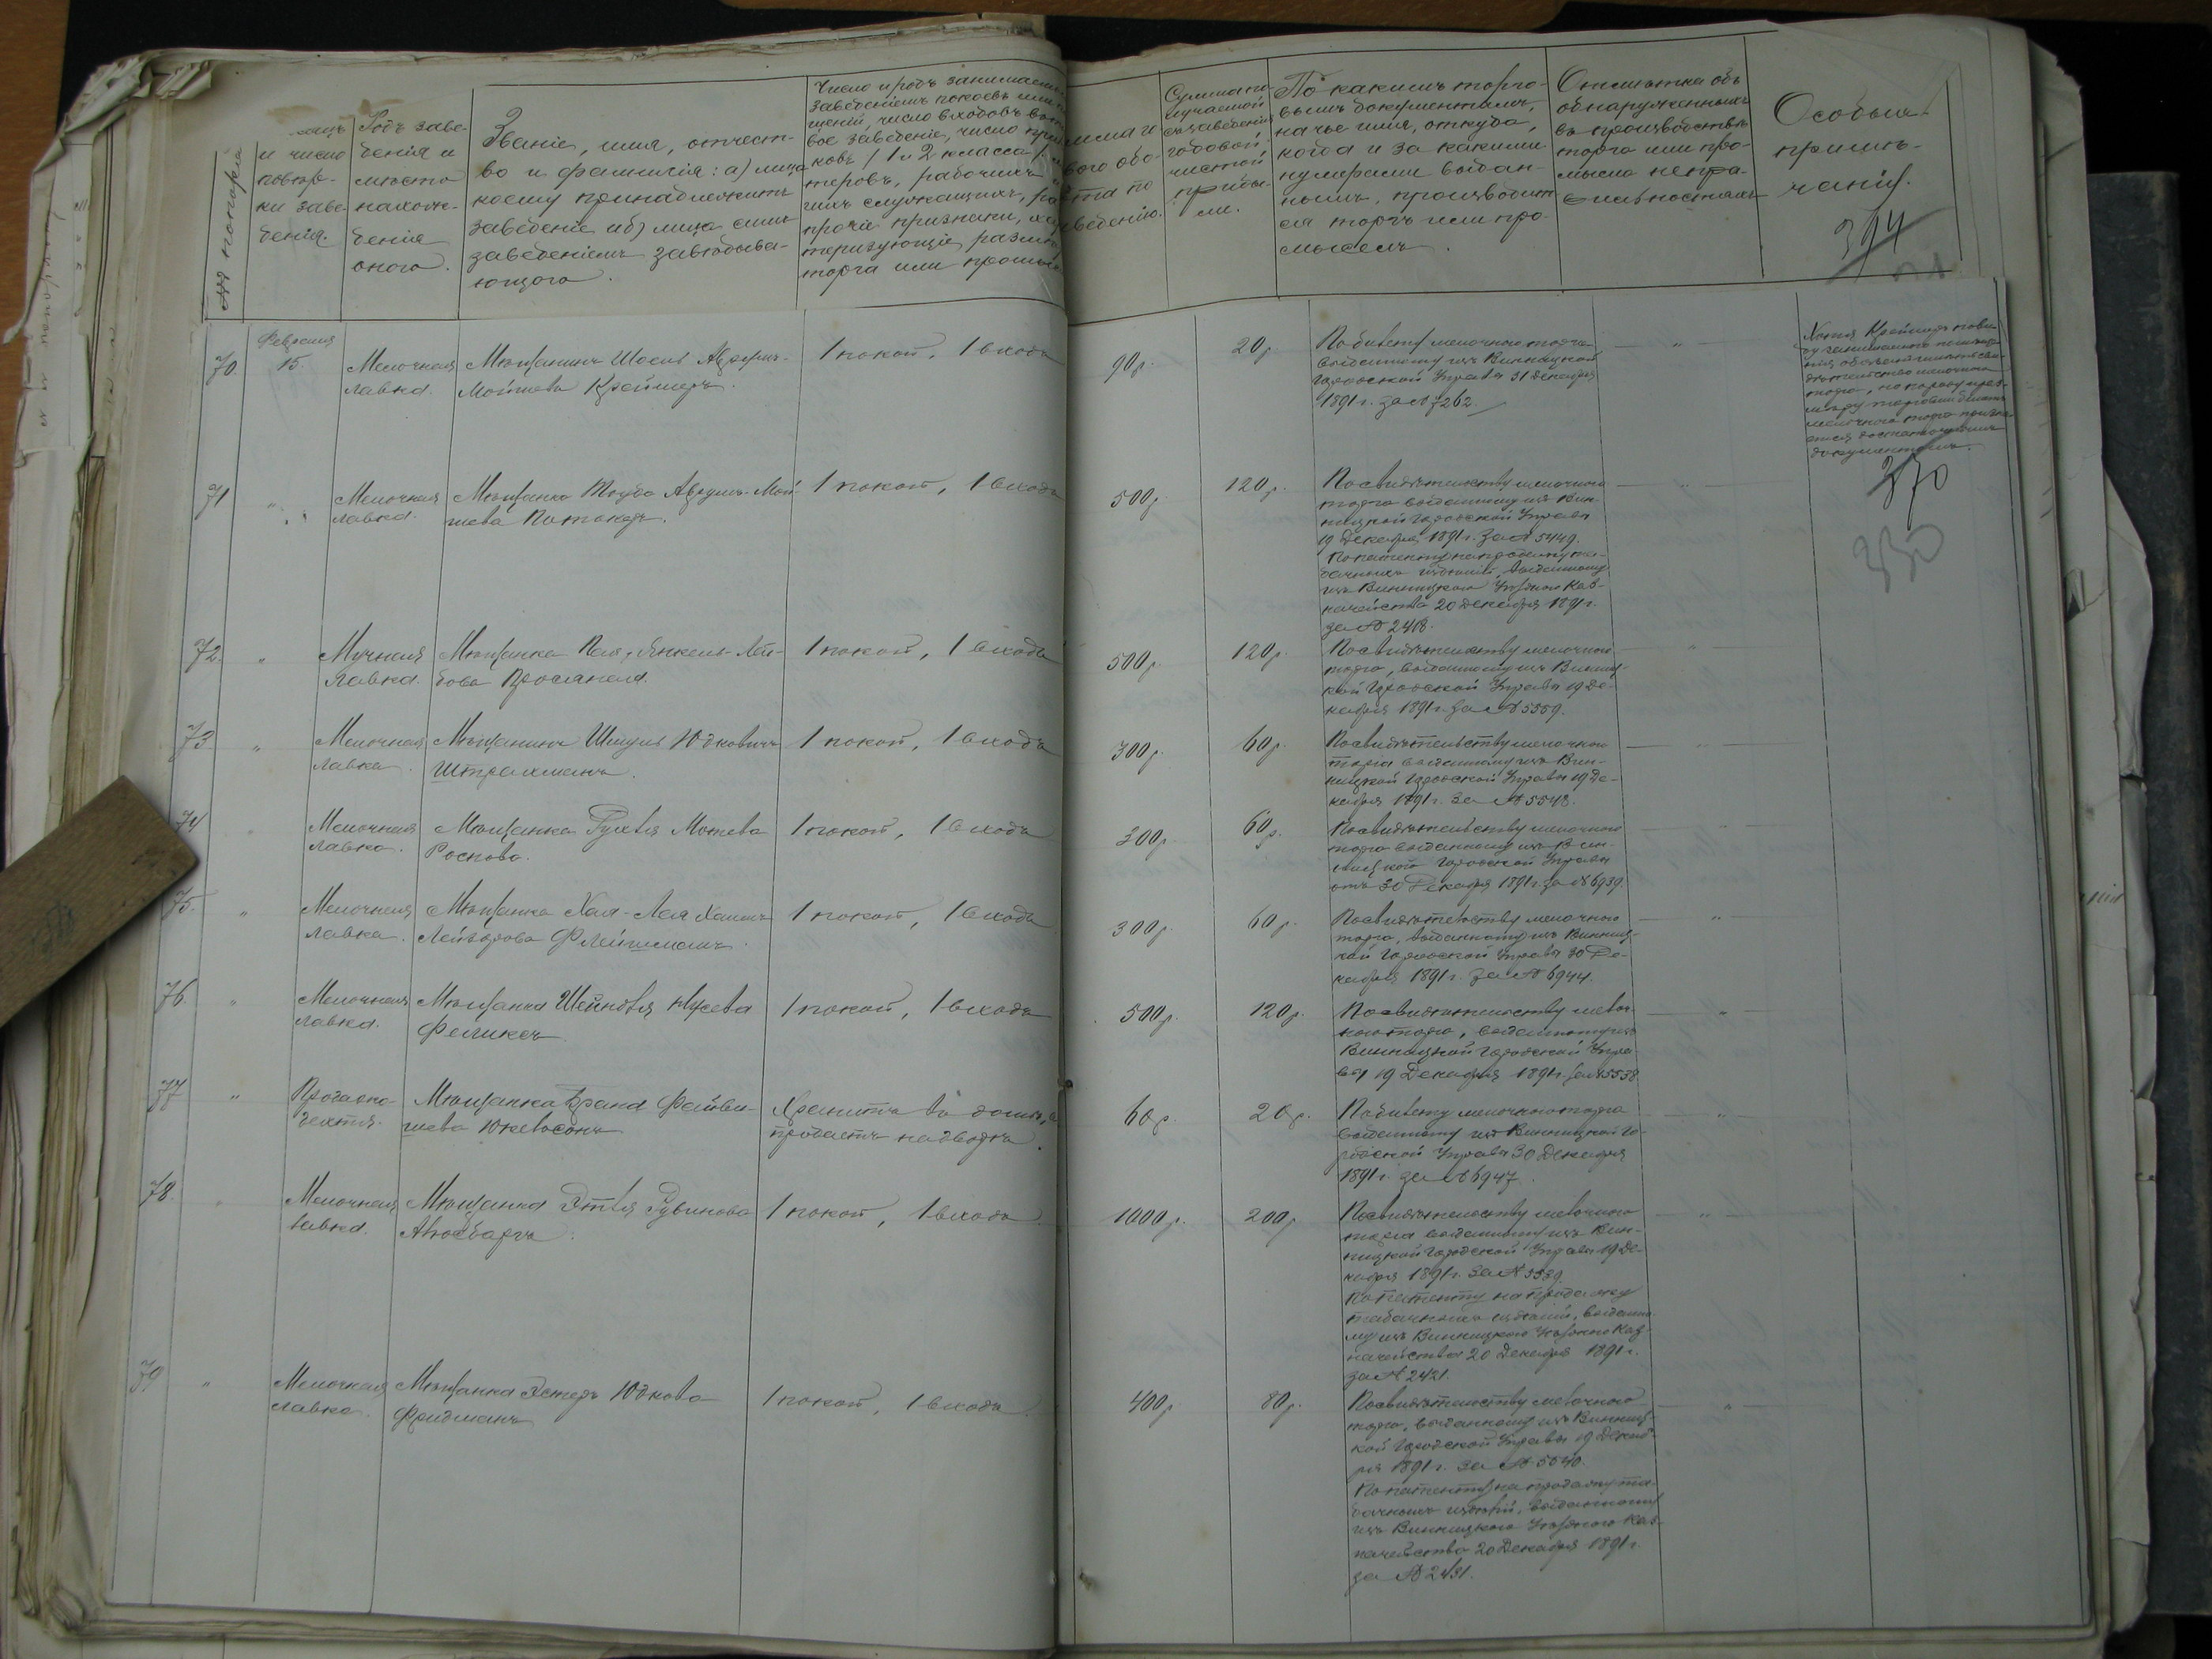 №№ попоряд
и число
повѣр-
ки заве-
денія.
Родъ заве-
денія и
мѣсто
нахож-
денія
оного.
Званіе, имя, отчест-
во и фамилія: а) лица
коему принадлежитъ
заведеніе и б) лица симъ
заведеніемъ завѣдыва-
ющаго.
Число и родъ занимаем
заведеніемъ покоевъ или
щеній, число входовъ въ
вое заведеніе, число прик
ковъ (1 и 2 класса),
теровъ, рабочихъ
ихъ служащихъ,
прочіе признаки, хар
теризующіе размѣ
торга или промыс
вого обо-
та по
ведѣнію.
Сумма по-
лучаемой
съ заведенія
годовой
чистой
прибы-
ли.
По какимъ торго-
вымъ документамъ,
на чье имя, откуда,
когда и за какими
нумерами выдан-
нымъ, производит
ся торгъ или про-
мыселъ.
Отмѣтка объ
обнаруженныхъ
въ производствѣ
торга или про-
мысла непра-
вильностяхъ
Особыя
примѣ-
чанія.
394
70. Февраля 15. Мелочная Мѣщанинъ Шоель Аврумъ- 1 покой, 1 входъ 90 р. 20 р. По билету мелочного торга
лавка. Мойшевъ Креймеръ. выданному изъ Винницкой
Городской Управы 31 Декабря
1891 г. за № 7262.
документомъ.
370
350
71 " Мелочная Мѣщанка Тауба Аврумъ-Мой- 1 покой, 1 входъ 500 р. 120 р. По свидѣтельству мелочного
лавка. шева Потокеръ. торга выданному изъ Вин-
ницкой Городской Управы
19 Декабря 1891 г. за № 5449.
По патенту на продажу та-
бачныхъ издѣлій, выданному
изъ Винницкаго Уѣзднаго Каз-
начейства 20 Декабря 1891 г.
за № 2418.
72. " Мучная Мѣщанка Пая, Янкель-Лей- 1 покой, 1 входъ 500 р. 120 р. По свидѣтельству мелочного
лавка. бова Просяная. торга, выданному изъ Винниц-
кой Городской Управы 19 Де-
кабря 1891 г. за № 5559.
73. " Мелочная Мѣщанинъ Шмуль Юдковичъ 1 покой, 1 входъ 300 р. 60 р. По свидѣтельству мелочного
лавка. Штрахманъ. торга выданному изъ Вин-
ницкой Городской Управы 19 Де-
кабря 1891 г. за № 5548.
74 Мелочная Мѣщанка Рухля Мотева 1 покой, 1 входъ 300 р. 60 р. По свидѣтельству мелочного
лавка. Роснова. торга выданному изъ Вин-
ницкой Городской Управы
отъ 30 Декабря 1891 г. за № 6939.
75. " Мелочная Мѣщанка Хая-Лея Хаимъ 1 покой, 1 входъ 300 р. 60 р. По свидѣтельству мелочного
лавка. Лейзорова Флейшманъ. торга, выданному изъ Винниц-
кой Городской Управы 30 Де-
кабря 1891 г. за № 6944.
76. " Мелочная Мѣщанка Шейндля Нусева 1 покой, 1 входъ 500 р. 120 р. По свидѣтельству мелоч-
лавка. Феликсъ ного торга, выданному изъ
Винницкой Городской Упра-
вы 19 Декабря 1891 г. за № 5538
77 " Продажа Мѣщанка Брана Файви- Хранитъ въ домѣ, а 60 р. 20 р. По билету мелочного торга
дегтя. шева Юкельсонъ продаетъ на дворѣ. выданному изъ Винницкой Го-
родской Управы 30 Декабря
1891 г. за № 6947.
78. " Мелочная Мѣщанка Этля Рувинова 1 покой, 1 входъ. 1000 р. 200 р. По свидѣтельству мелочного
лавка. торга выданному изъ Вин-
ницкой Городской Управы 19 Де-
кабря 1891 г. за № 5539.
По патенту на продажу
табачныхъ издѣлій, выданно-
му изъ Винницкаго Уѣзднаго Каз-
начейства 20 Декабря 1891 г.
за № 2421.
79 " Мелочная Мѣщанка Эстеръ Юдкова 1 покой, 1 входъ. 400 р. 80 р. По свидѣтельству мелочного
лавка. Фридманъ торга, выданному изъ Винниц-
кой Городской Управы 19 Декаб-
ря 1891 г. за № 5540.
По патенту на продажу та-
бачныхъ издѣлій, выданному
изъ Винницкаго Уѣзднаго Каз-
начейства 20 Декабря 1891 г.
за № 2431.